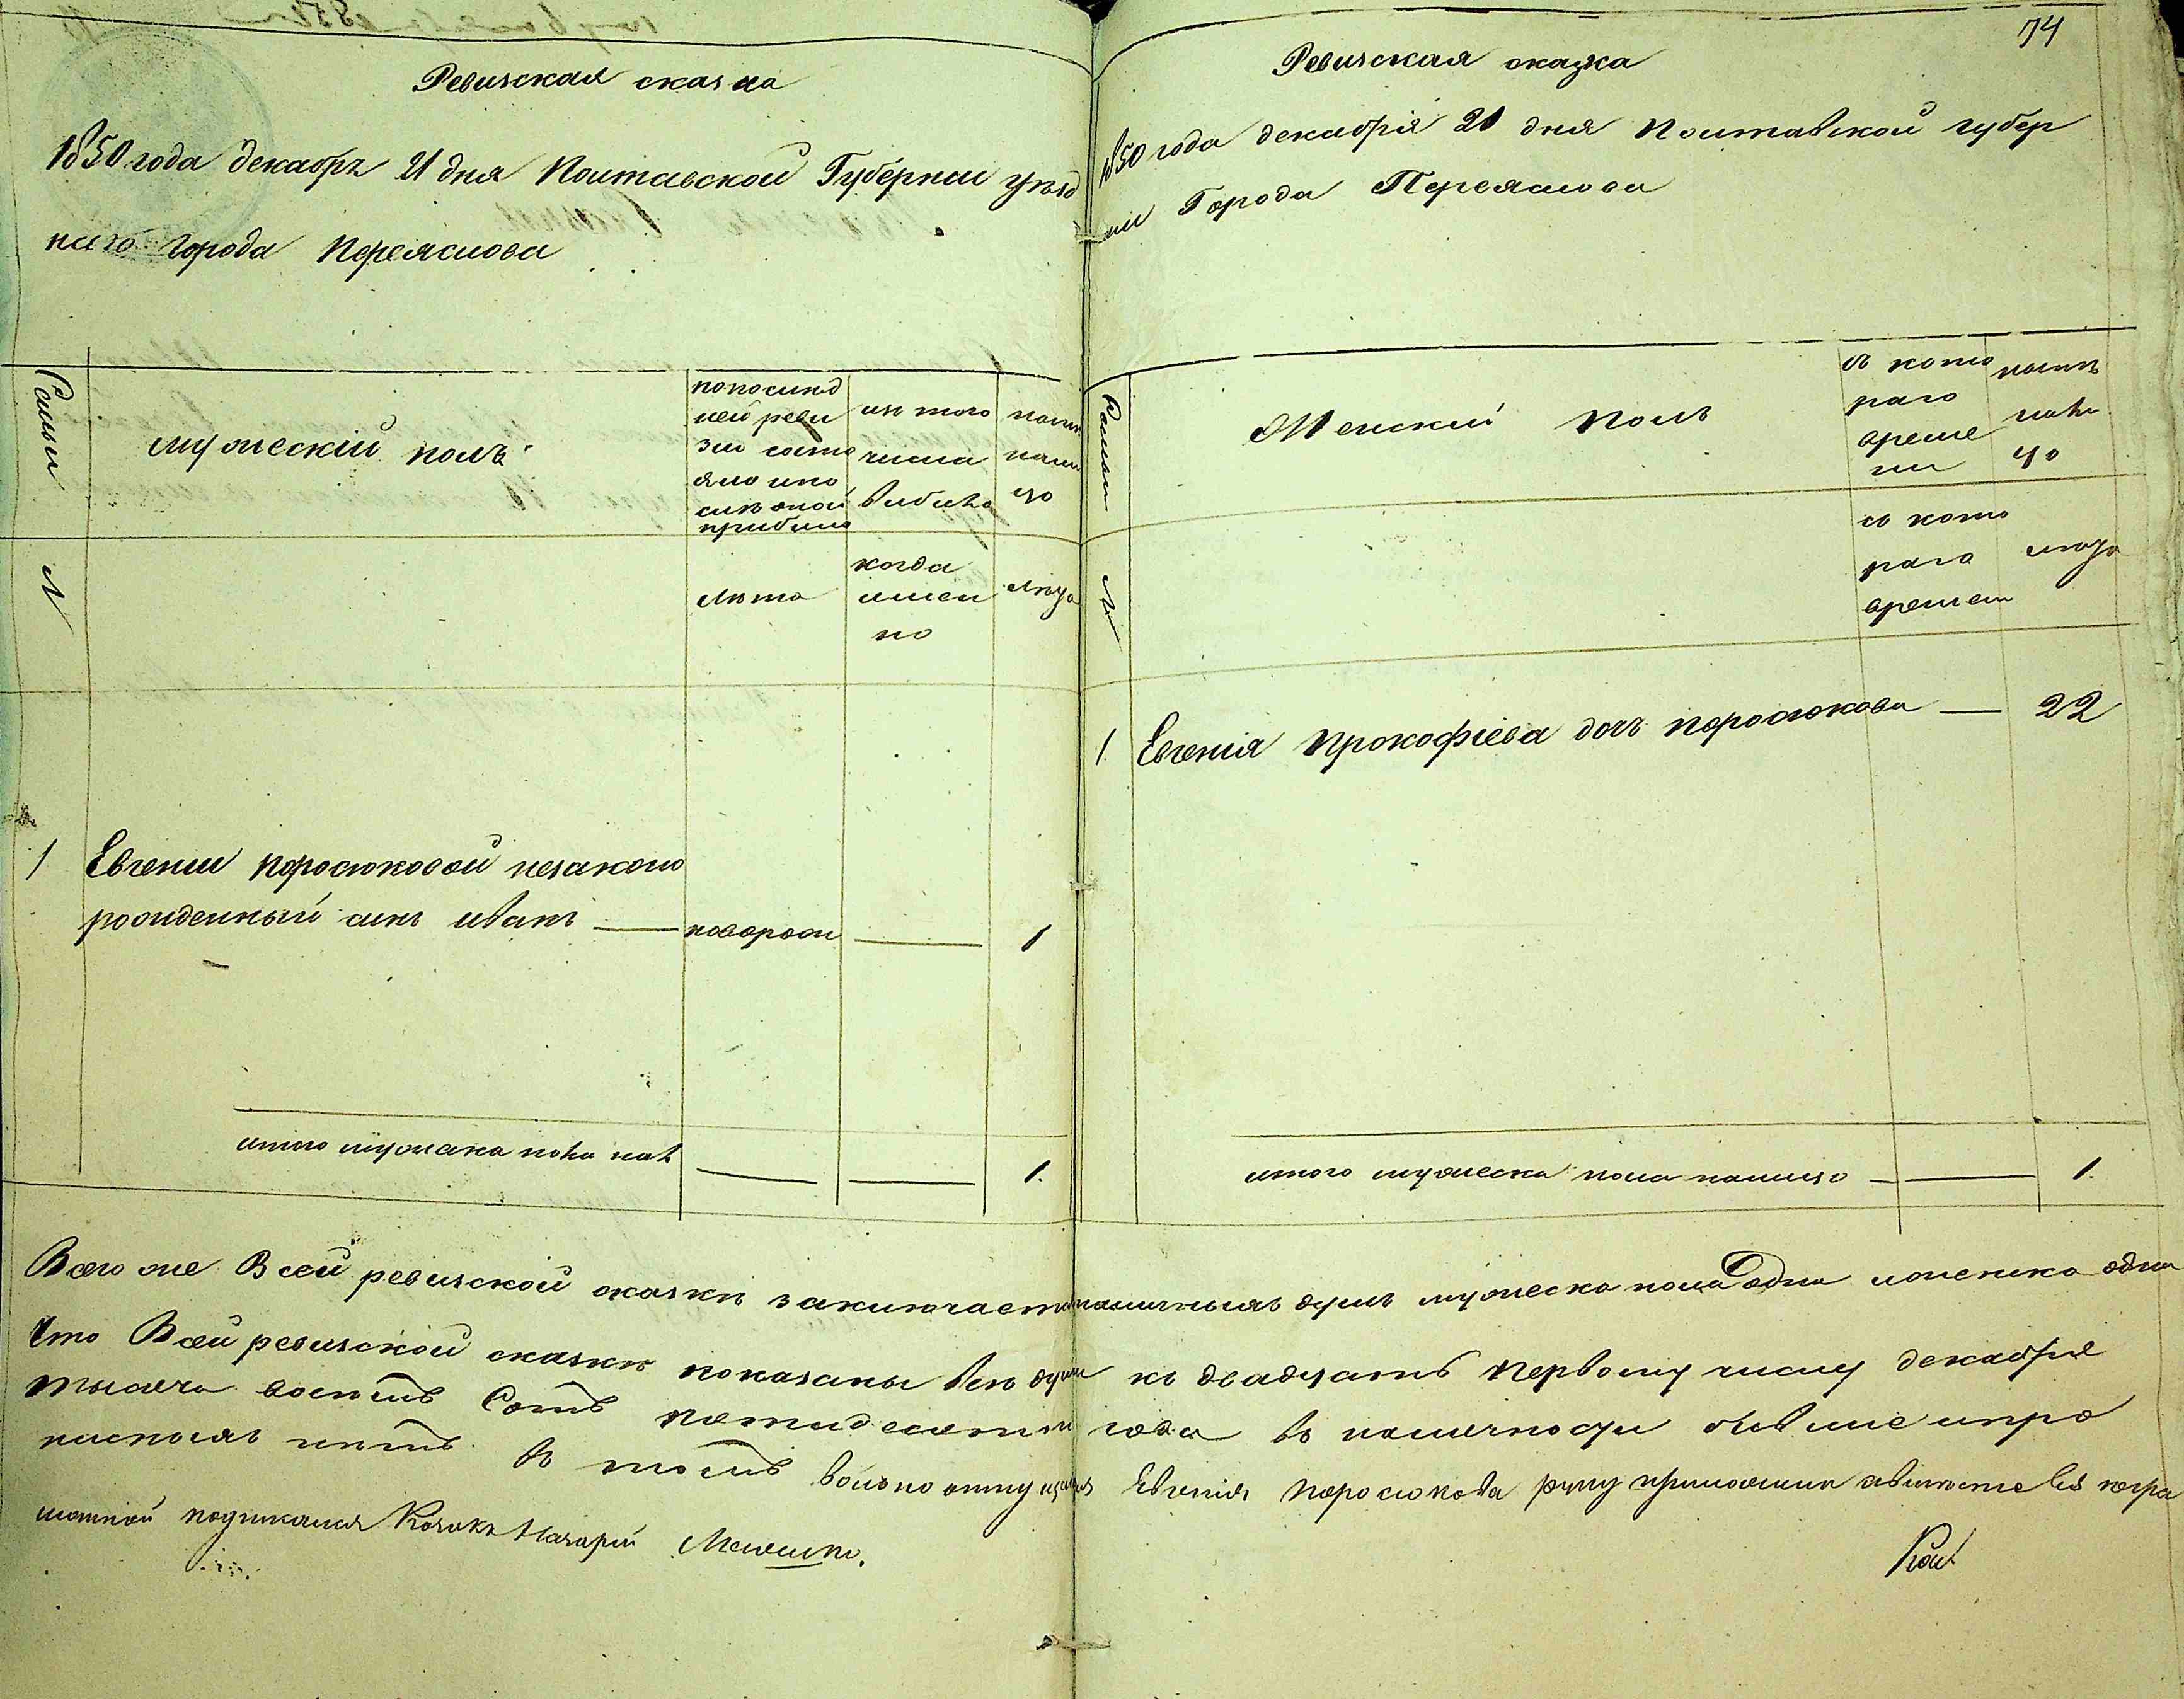 Ревизская сказка
1850 года декабръ 21 дня Полтавской Губернии уѣзд
наго города Переяслова
Семьи
мужескій полъ
по послѣд
ней реви
зіи состо
яло и по
слѣ оной
прибыло
изъ того
числа
выбыло
нынѣ
нали
цо
№
лѣта
когда
имен
но
лѣта
1
Евгении Поросюковой незаконо
рожденный сынъ Иванъ — новорож — 1
итого мужеска пола нал — — 1.
74
Ревизская сказка
1850 года декабря 21 дня Полтавской губер
нии Города Переяслова
Семьи
Женскій полъ
съ кото
раго
време
ни
нынѣ
нали
цо
№
съ кото
раго
времени
лѣта
1 Евгенія Прокофіева дочь Поросюкова — 22
итого мужеска пола налицо — — 1.
Всего же в сей ревизской сказкѣ заключается наличныхъ душъ мужеска пола одна и женска одна
Что в сей ревизской сказкѣ показаны всѣ души къ двадцать первому числу декабря
тысяча восемь сотъ пятидесятого года въ наличности бывшие и про
писныхъ нѣтъ въ томъ вольно отпущенная Евгенія Поросюкова руку приложила а вместо ея негра
мотной подписался Козакъ Назарий